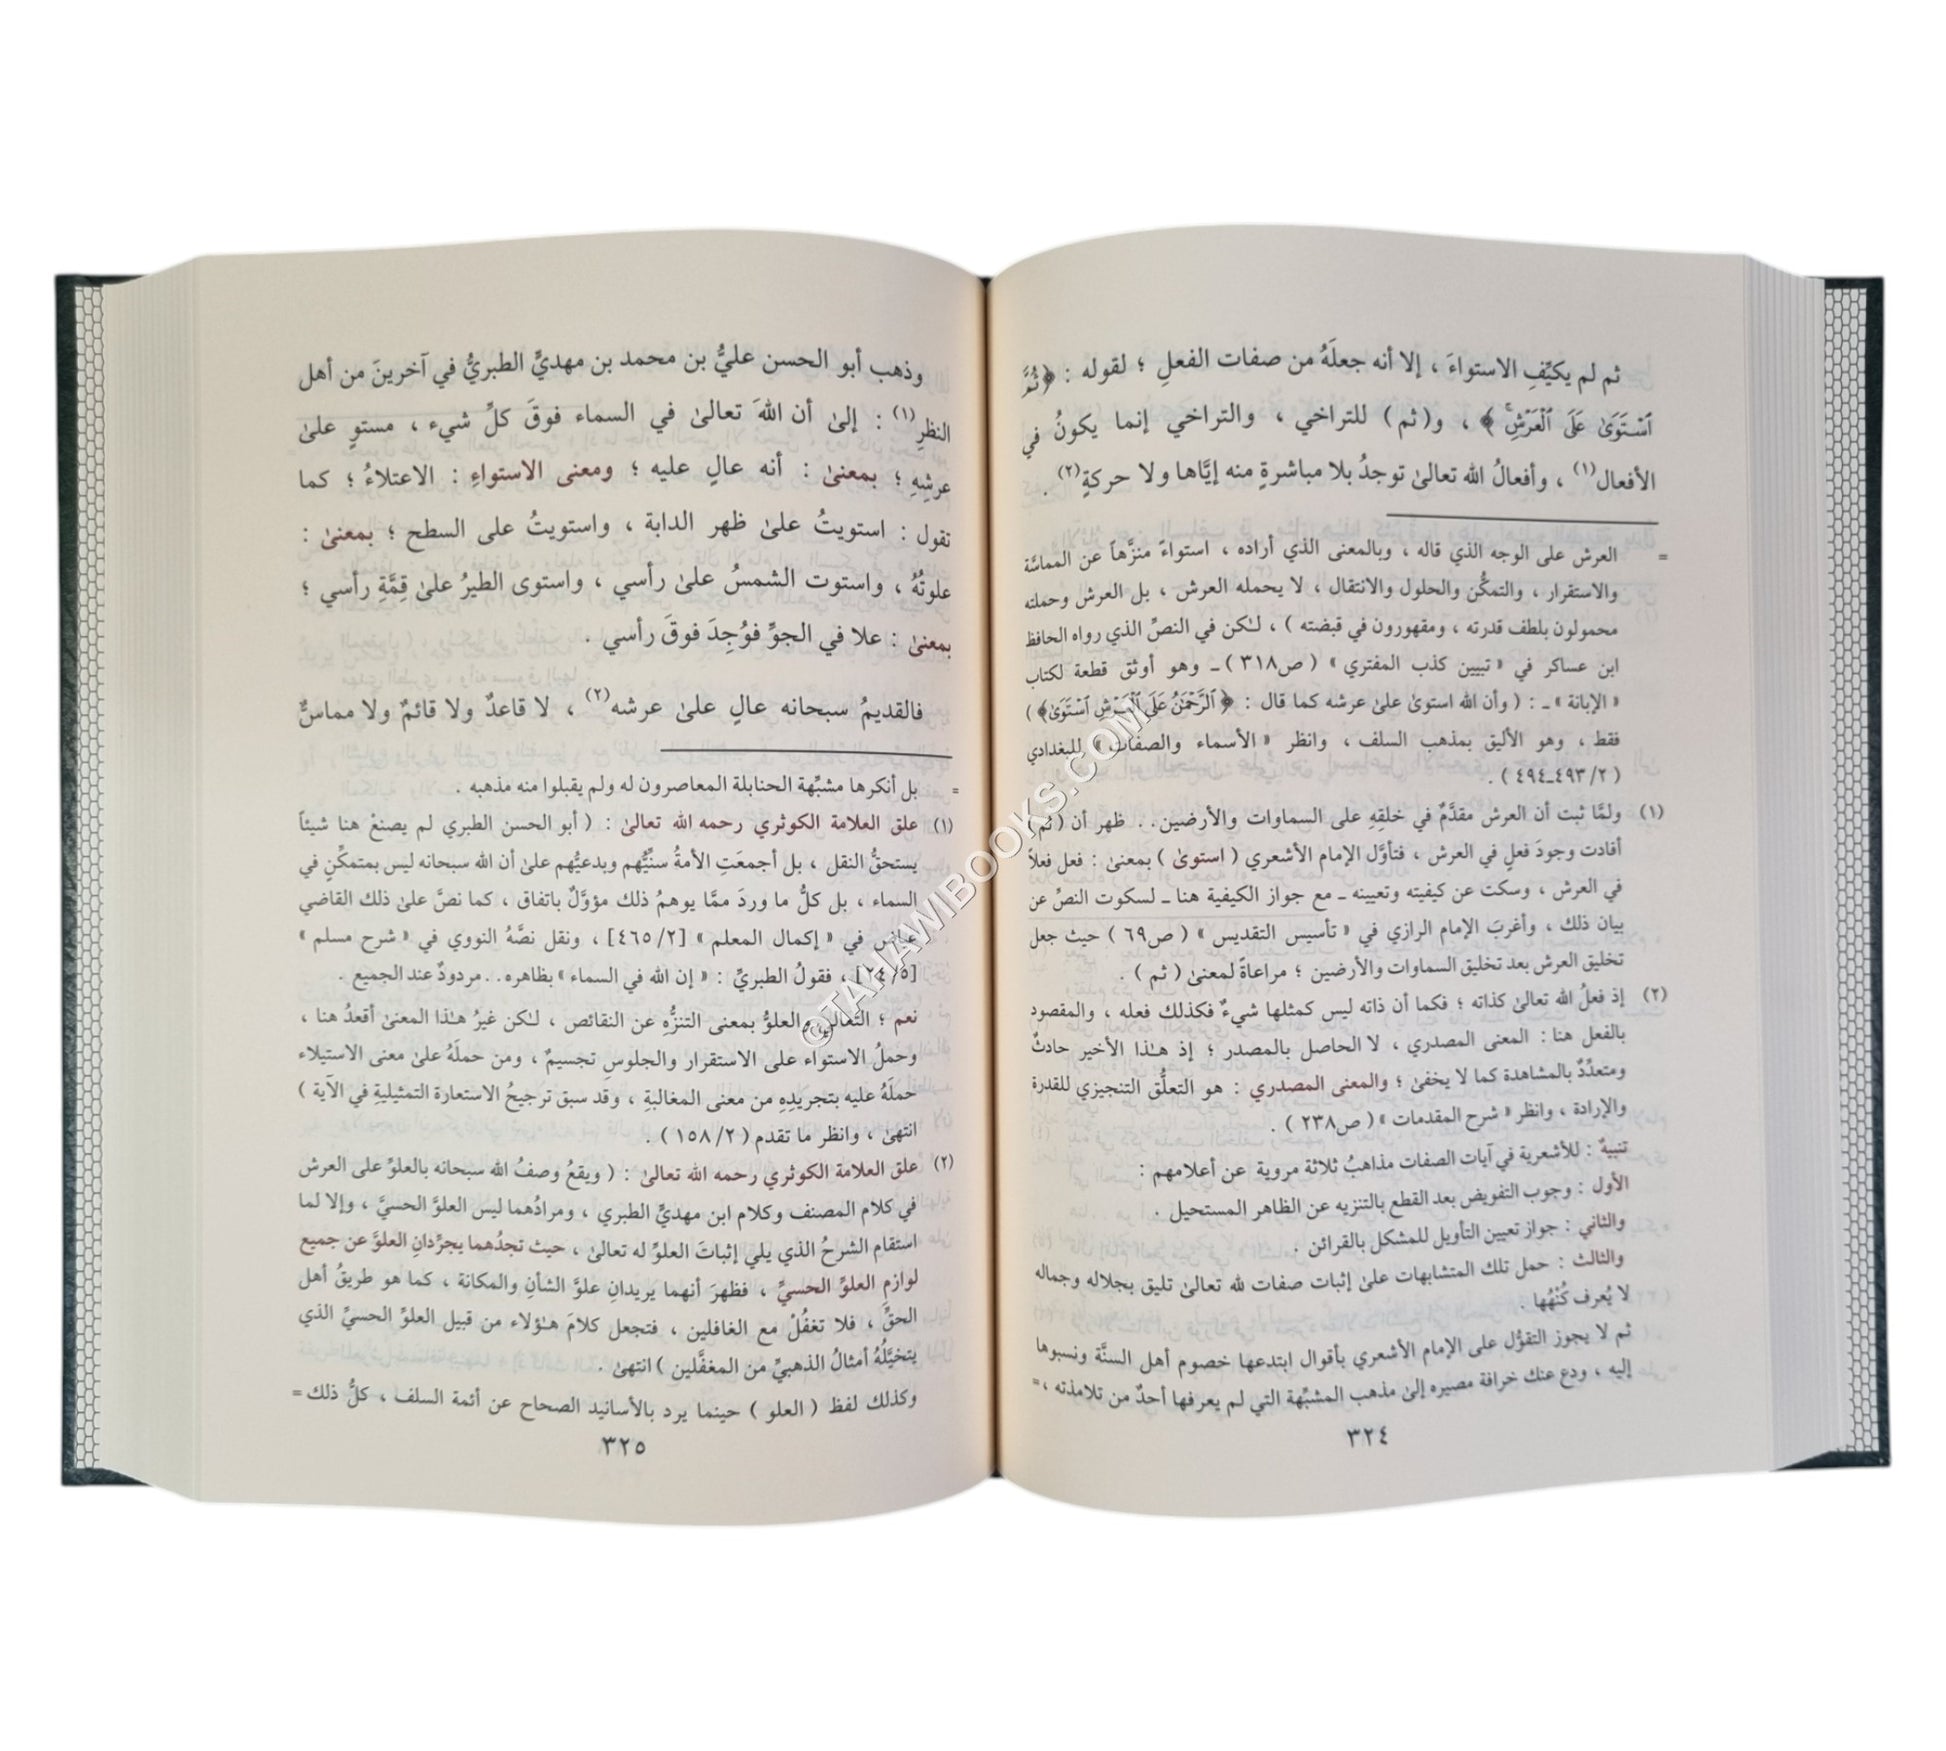 ثم لم يكيِّفِ الاستواءَ ، إلا أنه جعلَهُ من صفات الفعلِ ؛ لقوله : ﴿ثُمَّ
ٱسْتَوَىٰ عَلَى ٱلْعَرْشِ﴾ ، و( ثم ) للتراخي ، والتراخي إنما يكونُ في
الأفعال(١) ، وأفعالُ الله تعالىٰ توجدُ بلا مباشرةٍ منه إيَّاها ولا حركةٍ(٢) .
= العرش على الوجه الذي قاله ، وبالمعنى الذي أراده ، استواءً منزَّهاً عن المماسَّة
والاستقرار ، والتمكُّن والحلول والانتقال ، لا يحمله العرش ، بل العرش وحملته
محمولون بلطف قدرته ، ومقهورون في قبضته ) ، لـٰكن في النصِّ الذي رواه الحافظ
ابن عساكر في « تبيين كذب المفتري » ( ص٣١٨ ) ـ وهو أوثق قطعة لكتاب
« الإبانة » ـ : ( وأن الله استوىٰ علىٰ عرشه كما قال : ﴿ٱلرَّحْمَٰنُ عَلَى ٱلْعَرْشِ ٱسْتَوَىٰ﴾ )
فقط ، وهو الأليق بمذهب السلف ، وانظر « الأسماء والصفات » للبغدادي
( ٢/ ٤٩٣ـ٤٩٤ ) .
(١) ولمَّا ثبت أن العرش مقدَّمٌ في خلقِهِ على السماوات والأرضين.. ظهر أن ( ثم )
أفادت وجودَ فعلٍ في العرش ، فتأوَّل الإمام الأشعري ( استوىٰ ) بمعنىٰ : فعل فعلاً
في العرش ، وسكت عن كيفيته وتعيينه ـ مع جواز الكيفية هنا ـ لسكوت النصِّ عن
بيان ذلك ، وأغربَ الإمام الرازي في « تأسيس التقديس » ( ص٦٩ ) حيث جعل
تخليق العرش بعد تخليق السماوات والأرضين ؛ مراعاةً لمعنىٰ ( ثم ) .
(٢) إذ فعلُ الله تعالىٰ كذاته ؛ فكما أن ذاته ليس كمثلها شيءٌ فكذلك فعله ، والمقصود
بالفعل هنا : المعنى المصدري ، لا الحاصل بالمصدر ؛ إذ هـٰذا الأخير حادثٌ
ومتعدِّدٌ بالمشاهدة كما لا يخفىٰ ؛ والمعنى المصدري : هو التعلُّق التنجيزي للقدرة
والإرادة ، وانظر « شرح المقدمات » ( ص٢٣٨ ) .
تنبيهٌ : للأشعرية في آيات الصفات مذاهبُ ثلاثة مروية عن أعلامهم :
الأول : وجوب التفويض بعد القطع بالتنزيه عن الظاهر المستحيل .
والثاني : جواز تعيين التأويل للمشكل بالقرائن .
والثالث : حمل تلك المتشابهات علىٰ إثبات صفات لله تعالىٰ تليق بجلاله وجماله
لا يُعرف كُنْهُها .
ثم لا يجوز التقوُّل على الإمام الأشعري بأقوال ابتدعها خصوم أهل السنَّة ونسبوها
إليه ، ودع عنك خرافة مصيره إلىٰ مذهب المشبِّهة التي لم يعرفها أحدٌ من تلامذته ، =
٣٢٤
وذهب أبو الحسن عليُّ بن محمد بن مهديٍّ الطبريُّ في آخرينَ من أهل
النظرِ(١) : إلىٰ أن اللهَ تعالىٰ في السماء فوقَ كلِّ شيء ، مستوٍ علىٰ
عرشِهِ ؛ بمعنىٰ : أنه عالٍ عليه ؛ ومعنى الاستواءِ : الاعتلاءُ ؛ كما
تقول : استويتُ علىٰ ظهر الدابة ، واستويتُ على السطح ؛ بمعنىٰ :
علوتُهُ ، واستوت الشمسُ علىٰ رأسي ، واستوى الطيرُ علىٰ قِمَّةِ رأسي ؛
بمعنىٰ : علا في الجوِّ فوُجِدَ فوقَ رأسي .
فالقديمُ سبحانه عالٍ علىٰ عرشه(٢) ، لا قاعدٌ ولا قائمٌ ولا مماسٌّ
= بل أنكرها مشبِّهة الحنابلة المعاصرون له ولم يقبلوا منه مذهبه .
(١) علق العلامة الكوثري رحمه الله تعالىٰ : ( أبو الحسن الطبري لم يصنعْ هنا شيئاً
يستحقُّ النقل ، بل أجمعَتِ الأمةُ سنِّيُّهم وبدعيُّهم علىٰ أن الله سبحانه ليس بمتمكِّنٍ في
السماء ، بل كلُّ ما وردَ ممَّا يوهمُ ذلك مؤوَّلٌ باتفاق ، كما نصَّ علىٰ ذلك القاضي
عياض في « إكمال المعلم » [٢/ ٤٦٥] ، ونقل نصَّهُ النووي في « شرح مسلم »
[٥/ ٢٤] ، فقولُ الطبريِّ : « إن الله في السماء » بظاهره.. مردودٌ عند الجميع .
نعم ؛ التعالي والعلوُّ بمعنى التنزُّهِ عن النقائص ، لـٰكن غيرُ هـٰذا المعنىٰ أقعدُ هنا ،
وحملُ الاستواء على الاستقرار والجلوسِ تجسيمٌ ، ومن حملَهُ علىٰ معنى الاستيلاء
حملَهُ عليه بتجريدِهِ من معنى المغالبةِ ، وقد سبق ترجيحُ الاستعارة التمثيليةِ في الآية )
انتهىٰ ، وانظر ما تقدم ( ٢/ ١٥٨ ) .
(٢) علق العلامة الكوثري رحمه الله تعالىٰ : ( ويقعُ وصفُ الله سبحانه بالعلوِّ على العرش
في كلام المصنف وكلام ابن مهديٍّ الطبري ، ومرادُهما ليس العلوَّ الحسيَّ ، وإلا لما
استقام الشرحُ الذي يلي إثباتَ العلوِّ له تعالىٰ ، حيث تجدُهما يجرِّدانِ العلوَّ عن جميع
لوازم العلوِّ الحسيِّ ، فظهرَ أنهما يريدانِ علوَّ الشأنِ والمكانة ، كما هو طريقُ أهل
الحقِّ ، فلا تغفُلْ مع الغافلين ، فتجعل كلامَ هـٰؤلاء من قبيل العلوِّ الحسيِّ الذي
يتخيَّلُهُ أمثالُ الذهبيِّ من المغفَّلين ) انتهىٰ .
وكذلك لفظ ( العلو ) حينما يرد بالأسانيد الصحاح عن أئمة السلف ، كلُّ ذلك =
٣٢٥
©TAHAWIBOOKS.COM